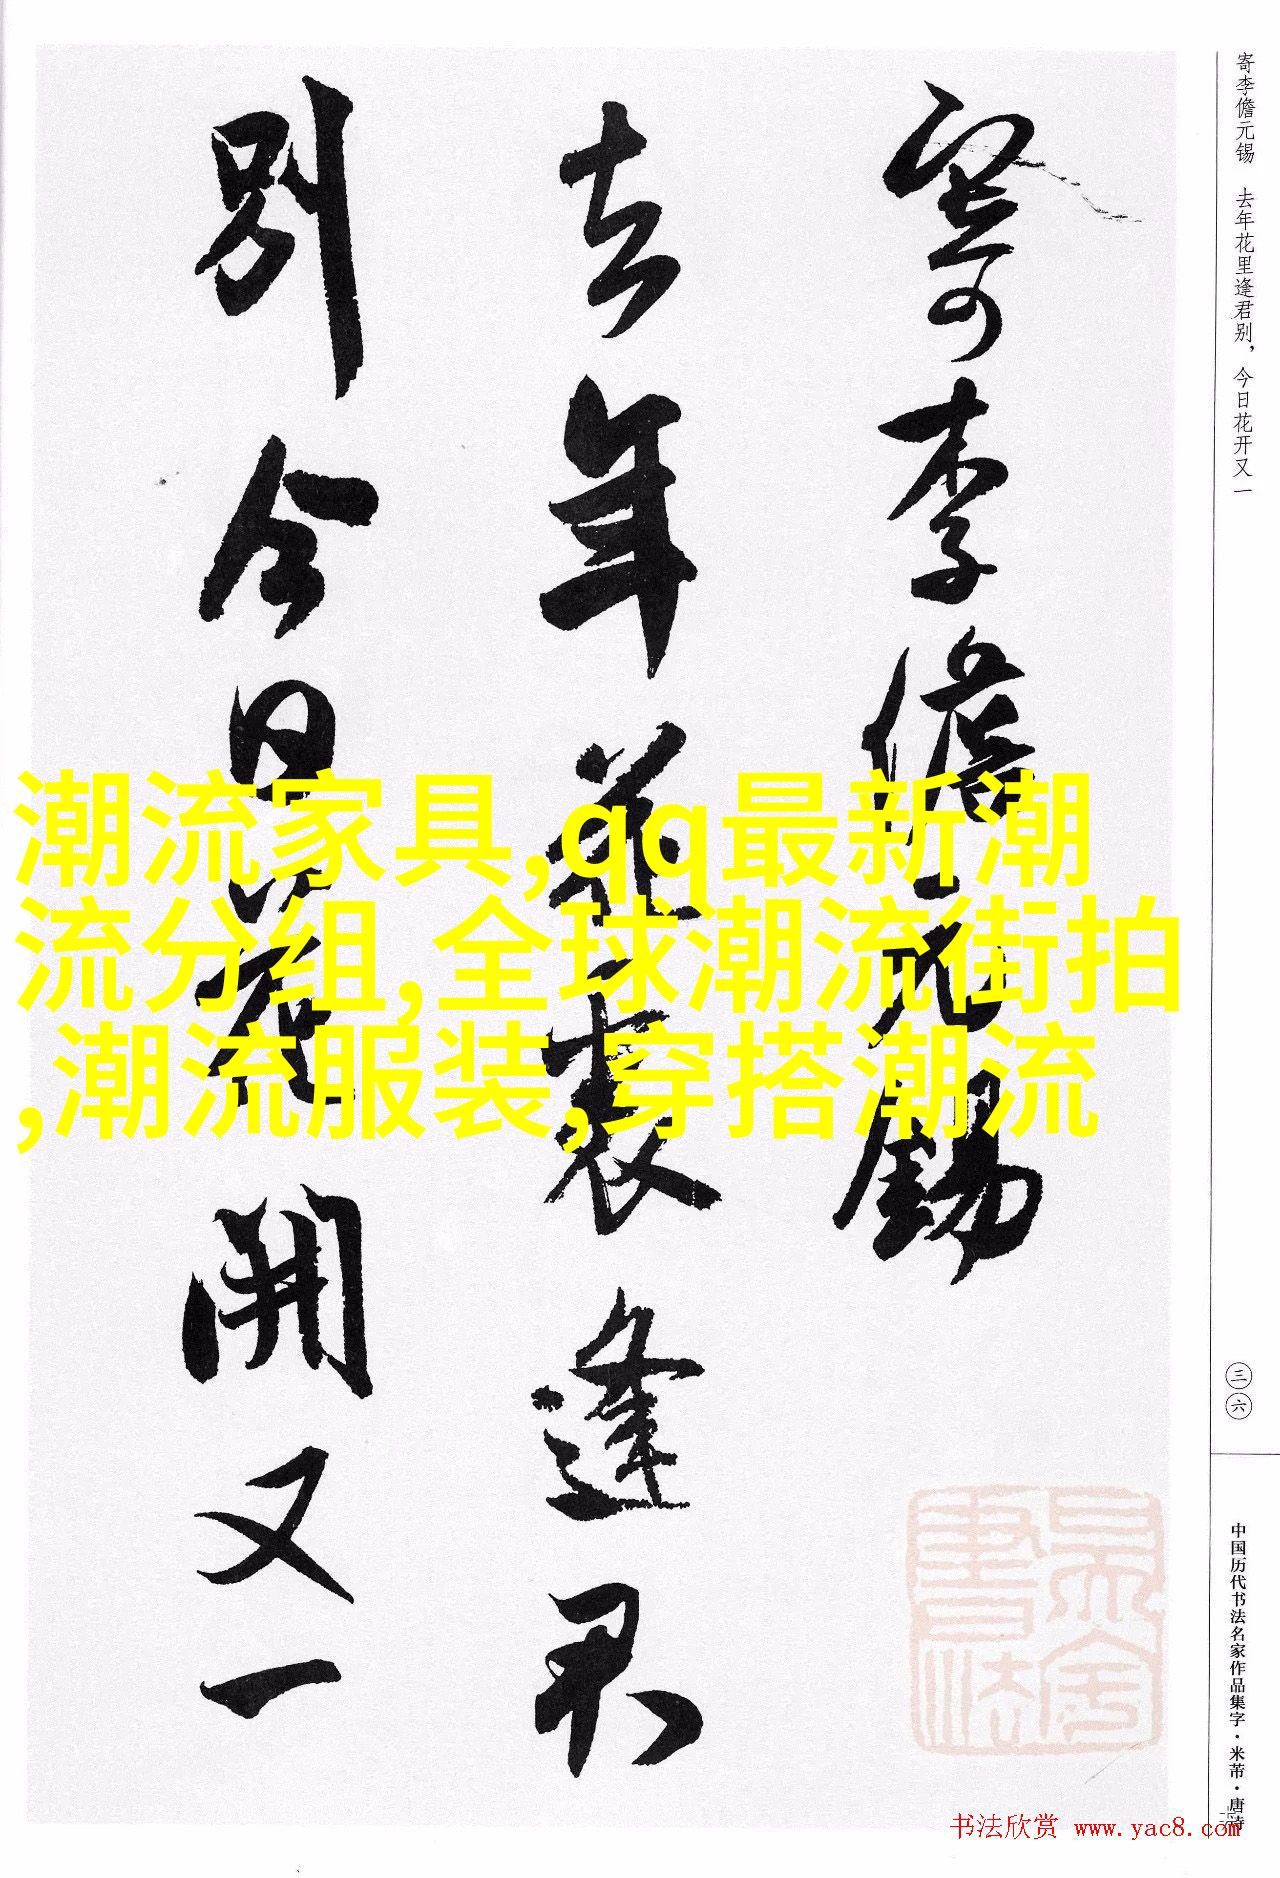 寄李儋元锡 去年花里逢君别，今日花开又一
寄李儋元錫
去年花裏逢君
別今日花開又一
潮流家具,qq最新潮
流分组,全球潮流街拍
,潮流服装,穿搭潮流
三六
中国历代书法名家作品集字·米芾·唐诗
书法欣赏 www.yac8.com